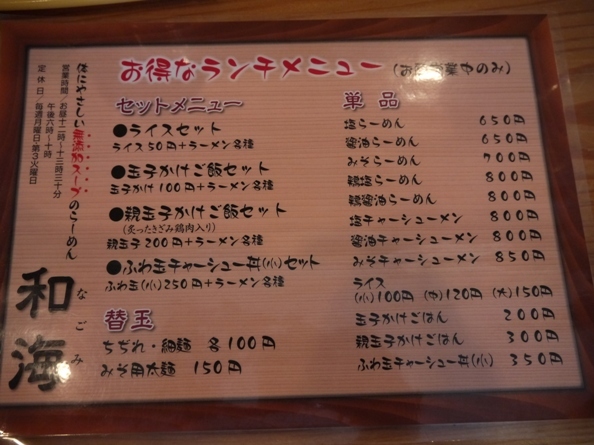 お得なランチメニュー (お昼営業中のみ)
セットメニュー
●ライスセット
ライス50円+ラーメン各種
●玉子かけご飯セット
玉子かけ100円+ラーメン各種
●親玉子かけご飯セット
(炙ったきざみ鶏肉入り)
親玉子200円+ラーメン各種
●ふわ玉チャーシュー丼(小)セット
ふわ玉(小)250円+ラーメン各種
替玉
ちぢれ・細麺 各100円
みそ用太麺 150円
単品
塩らーめん 650円
醤油らーめん 650円
みそらーめん 700円
鶏塩らーめん 800円
鶏醤油らーめん 800円
塩チャーシューメン 800円
醤油チャーシューメン 800円
みそチャーシューメン 850円
ライス
(小)100円 (中)120円 (大)150円
玉子かけごはん 200円
親玉子かけごはん 300円
ふわ玉チャーシュー丼(小) 350円
体にやさしい無添加スープのらーめん
営業時間/お昼十一時~十三時三十分
午後六時~十時
定休日/毎週月曜日・第3火曜日
和海
なごみ